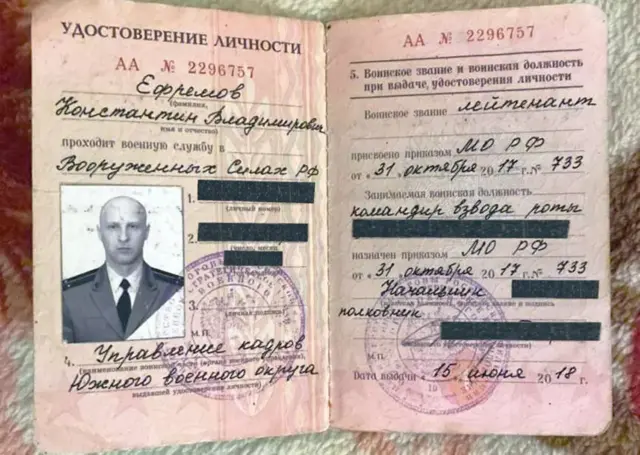 УДОСТОВЕРЕНИЕ ЛИЧНОСТИ
АА № 2296757
Ефремов
(фамилия,
Константин Владимирович
имя и отчество)
проходит военную службу в
Вооруженных Силах РФ
1.
(личный номер)
2.
3.
(личная подпись)
М.П.
4. Управление кадров
Южного военного округа
выдавшей удостоверение личности)
АА № 2296757
5. Воинское звание и воинская должность
при выдаче удостоверения личности
Воинское звание лейтенант
присвоено приказом МО РФ
от «31» октября 2017 г. № 733
Занимаемая воинская должность
командир взвода роты
назначен приказом МО РФ
от «31» октября 2017 г. № 733
Начальник
полковник
М.П.
Дата выдачи «15» июня 2018 г.